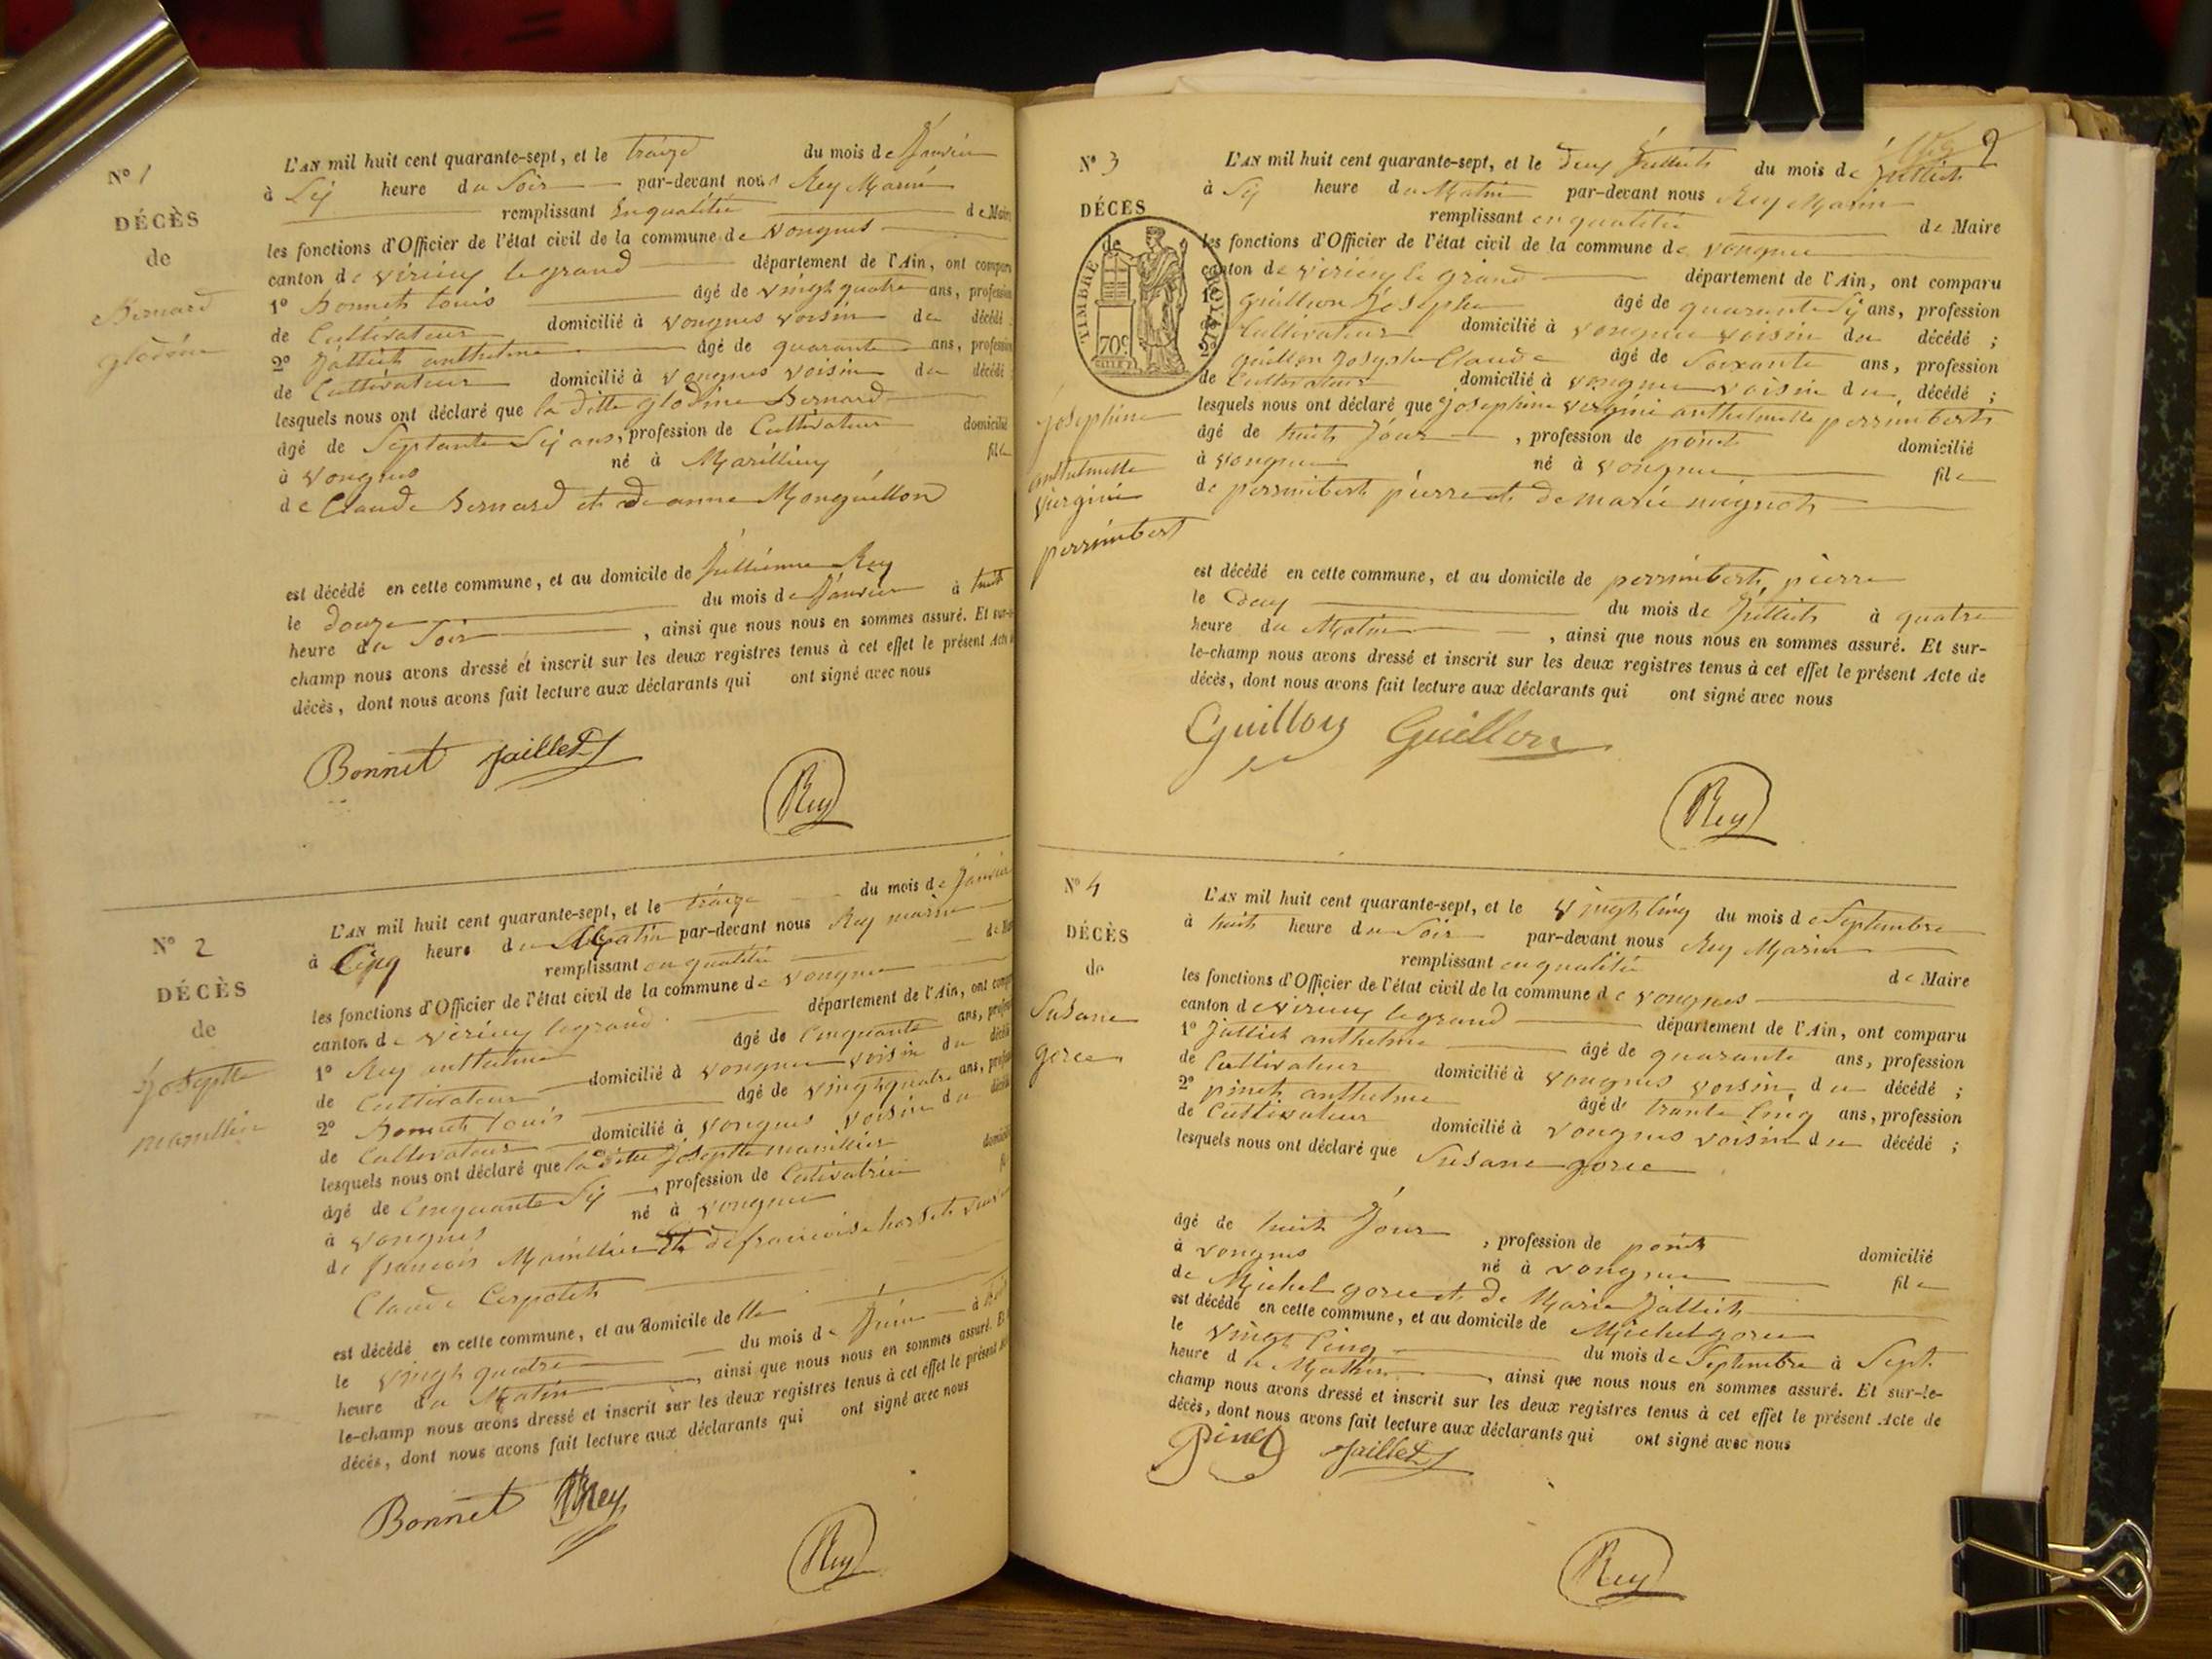 N° 1
DÉCÈS
de
Bernard
glodine
L'AN mil huit cent quarante-sept, et le traize du mois de Janvier
à Sij heure du Soir par-devant nous Rey Marin
remplissant en qualitée de Maire
les fonctions d'Officier de l'état civil de la commune de Vongnes
canton de virieux le grand département de l'Ain, ont comparu
1° Bonnet Louis âgé de vingt quatre ans, profession
de Cultivateur domicilié à vongnes voisin du décédé ;
2° Jalliet anthelme âgé de quarante ans, profession
de Cultivateur domicilié à vongnes voisin du décédé
lesquels nous ont déclaré que la ditte glodine Bernard
âgé de Septante Sij ans, profession de Cultivateur domicilié
à vongnes né à Marillieu file
de Claude Bernard et de anne Monguillon
est décédé en cette commune, et au domicile de Jullienne Rey
le douze du mois de Janvier à huit
heure du Soir , ainsi que nous nous en sommes assuré. Et sur-le-
champ nous avons dressé et inscrit sur les deux registres tenus à cet effet le présent Acte de
décès, dont nous avons fait lecture aux déclarants qui ont signé avec nous
Bonnet Jaillet
Rey
N° 2
DÉCÈS
de
Josephte
L'AN mil huit cent quarante-sept, et le traize du mois de Janvier
à Cinq heure du Matin par-devant nous Rey marin
remplissant en qualitée de Maire
les fonctions d'Officier de l'état civil de la commune de vongnes
canton de virieux le grand département de l'Ain, ont comparu
1° Rey anthelme âgé de Cinquante ans, profession
de Cultivateur domicilié à vongnes voisin du décédé
2° Bonnet Louis âgé de vingt quatre ans, profession
de Cultivateur domicilié à vongnes voisin du décédé
lesquels nous ont déclaré que la ditte Josephte
âgé de Cinquante Sij , profession de domicilié
à vongnes né à vongnes
de francois et de francoise
Claude
est décédé en cette commune, et au domicile de
le vingt quatre du mois de Juin à
heure du Matin , ainsi que nous nous en sommes assuré. Et
le-champ nous avons dressé et inscrit sur les deux registres tenus à cet effet le présent
décès, dont nous avons fait lecture aux déclarants qui ont signé avec nous
Bonnet Rey
Rey
2
N° 3
DÉCÈS
de
TIMBRE ROYAL
70c
Josephine
anthelmette
virginie
perrimbert
L'AN mil huit cent quarante-sept, et le deux Juillet du mois de Juillet
à Sij heure du Matin par-devant nous Rey Marin
remplissant en qualitée de Maire
les fonctions d'Officier de l'état civil de la commune de vongnes
canton de virieux le grand département de l'Ain, ont comparu
1° guillon Josephe âgé de quarante Sij ans, profession
de Cultivateur domicilié à vongnes voisin du décédé ;
2° guillon Josephe Claude âgé de Soixante ans, profession
de Cultivateur domicilié à vongnes voisin du décédé ;
lesquels nous ont déclaré que Josephine virgini anthelmette perrimbert
âgé de huit Jour , profession de point domicilié
à vongnes né à vongnes file
de perrimbert pierre et de marie mignot
est décédé en cette commune, et au domicile de perrimbert pierre
le Deux du mois de Juillet à quatre
heure du Matin , ainsi que nous nous en sommes assuré. Et sur-
le-champ nous avons dressé et inscrit sur les deux registres tenus à cet effet le présent Acte de
décès, dont nous avons fait lecture aux déclarants qui ont signé avec nous
Guillon Guillon
Rey
N° 4
DÉCÈS
de
Susane
goree
L'AN mil huit cent quarante-sept, et le vingt Cinq du mois de Septembre
à huit heure du Soir par-devant nous Rey Marin
remplissant en qualitée de Maire
les fonctions d'Officier de l'état civil de la commune de vongnes
canton de virieux le grand département de l'Ain, ont comparu
1° Jalliet anthelme âgé de quarante ans, profession
de Cultivateur domicilié à vongnes voisin du décédé ;
2° pinet anthelme âgé de trante Cinq ans, profession
de Cultivateur domicilié à vongnes voisin du décédé ;
lesquels nous ont déclaré que Susane goree
âgé de huit Jour , profession de point domicilié
à vongnes né à vongnes file
de Michel goree et de Marie Jalliet
est décédé en cette commune, et au domicile de Michel goree
le vingt Cinq du mois de Septembre à Sept
heure du Mathin , ainsi que nous nous en sommes assuré. Et sur-le-
champ nous avons dressé et inscrit sur les deux registres tenus à cet effet le présent Acte de
décès, dont nous avons fait lecture aux déclarants qui ont signé avec nous
Pinet Jaillet
Rey